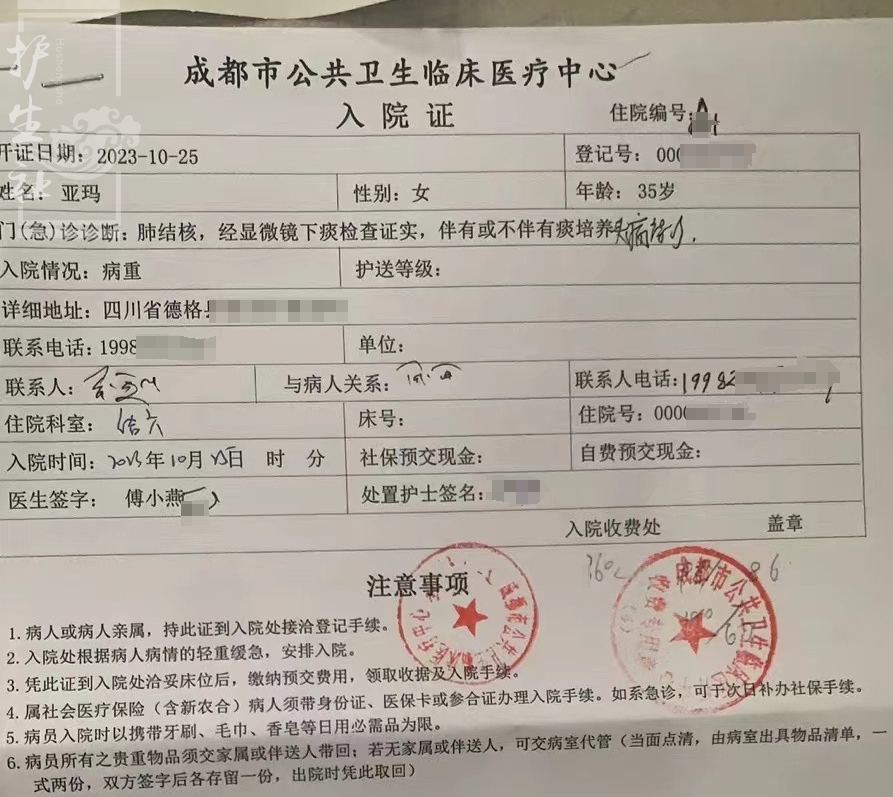 护生社
成都市公共卫生临床医疗中心
入院证
住院编号:
开证日期: 2023-10-25 登记号: 000
姓名: 亚玛 性别: 女 年龄: 35岁
门(急)诊诊断: 肺结核,经显微镜下痰检查证实,伴有或不伴有痰培养
入院情况: 病重 护送等级:
详细地址: 四川省德格县
联系电话: 1998 单位:
联系人: 与病人关系: 联系人电话: 1998
住院科室: 结六 床号: 住院号: 000
入院时间: 2023年10月25日 时 分 社保预交现金: 自费预交现金:
医生签字: 傅小燕 处置护士签名:
入院收费处 盖章
注意事项
1. 病人或病人亲属,持此证到入院处接洽登记手续。
2. 入院处根据病人病情的轻重缓急,安排入院。
3. 凭此证到入院处洽妥床位后,缴纳预交费用,领取收据及入院手续。
4. 属社会医疗保险(含新农合)病人须带身份证、医保卡或参合证办理入院手续。如系急诊,可于次日补办社保手续。
5. 病员入院时以携带牙刷、毛巾、香皂等日用必需品为限。
6. 病员所有之贵重物品须交家属或伴送人带回;若无家属或伴送人,可交病室代管(当面点清,由病室出具物品清单,一
式两份,双方签字后各存留一份,出院时凭此取回)